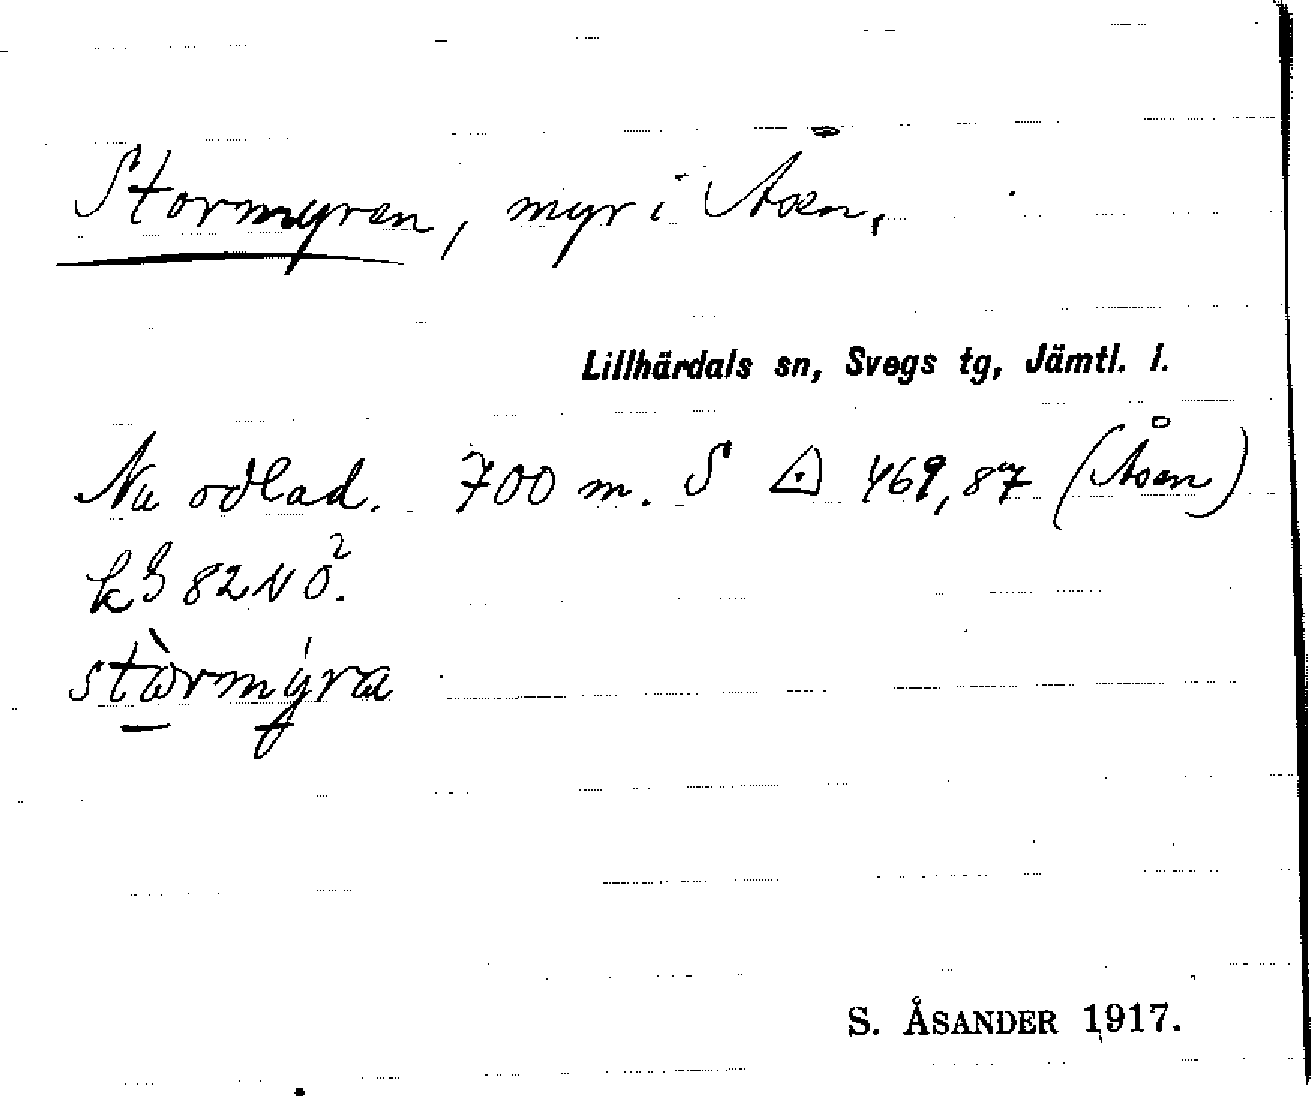 Stormyren, myr i Åsen,
Lillhärdals sn, Svegs tg, Jämtl. l.
Nu odlad. 700 m. S ◬ 469,87 (Åsen)
82 NO².
stòrmýra
S. ÅSANDER 1917.